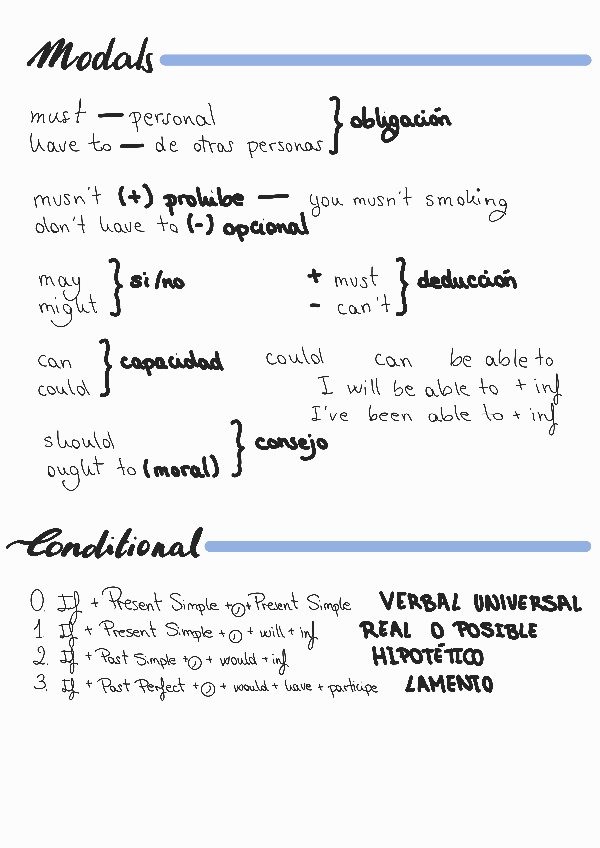 Modals
must — personal
have to — de otras personas } obligación
musn't (+) prohibe — you musn't smoking
don't have to (-) opcional
may
might } si/no
+ must
- can't } deducción
can
could } capacidad
could can be able to
I will be able to + inf
I've been able to + inf
should
ought to (moral) } consejo
Conditional
0. If + Present Simple + , + Present Simple VERBAL UNIVERSAL
1 If + Present Simple + , + will + inf REAL O POSIBLE
2. If + Past Simple + , + would + inf HIPOTÉTICO
3. If + Past Perfect + , + would + have + participe LAMENTO